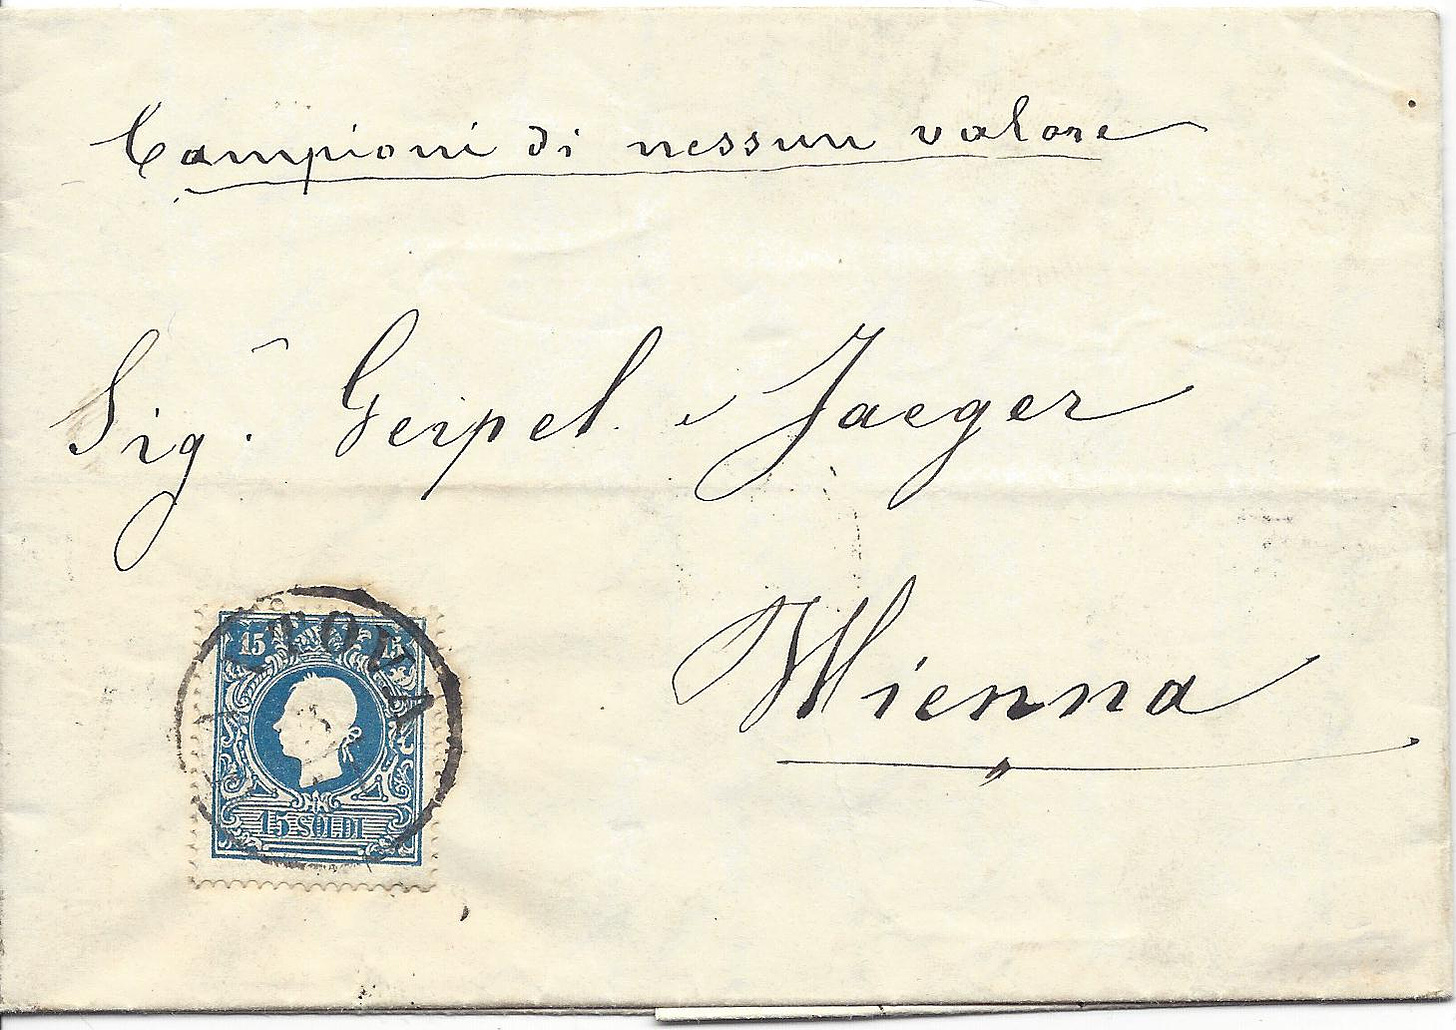 Campioni di nessun valore
Sig.ri Geipel e Jaeger
Wienna
15 15
15 SOLDI